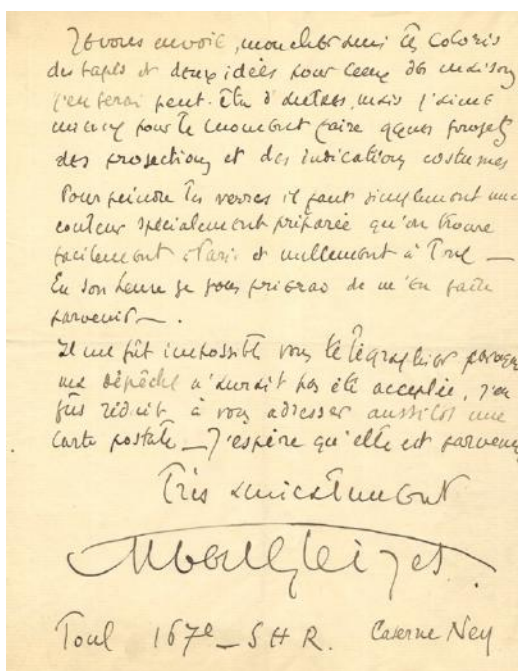 Je vous envoie, mon cher ami les coloris
des tapis et deux idées pour ceux des maisons
j'en ferai peut-être d'autres, mais j'aime
mieux pour le moment faire qques projets
des projections et des indications costumes
Pour peindre les verres il faut simplement une
couleur spécialement préparée qu'on trouve
facilement à Paris et nullement à Toul —
En son heure je vous prierai de m'en faire
parvenir —.
Il me fût impossible vous télégraphier parceque
ma dépêche n'aurait pas été acceptée, j'en
fus réduit à vous adresser aussitôt une
carte postale — J'espère qu'elle est parvenue
Très amicalement
Albert Gleizes.
Toul 167e — SHR. Caserne Ney